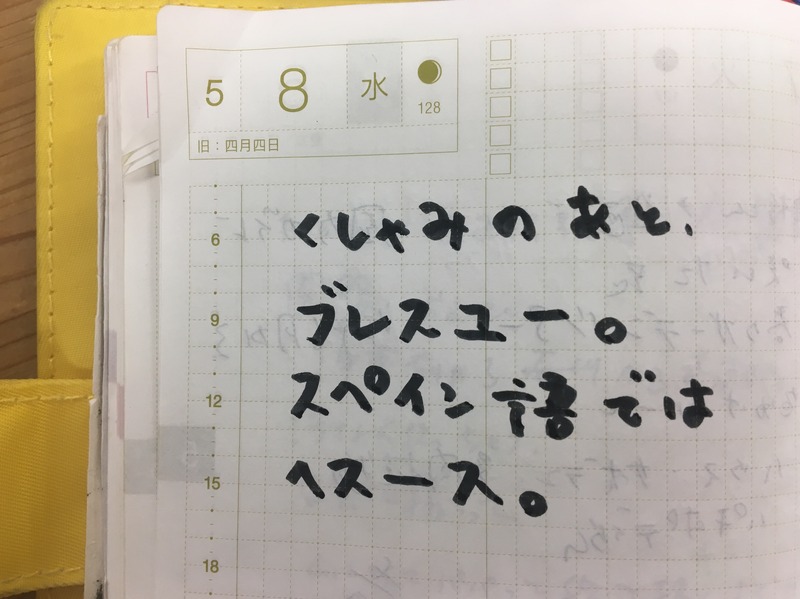 5 8 水
128
旧：四月四日
6
9
12
15
18
くしゃみのあと、
ブレスユー。
スペイン語では
ヘスース。